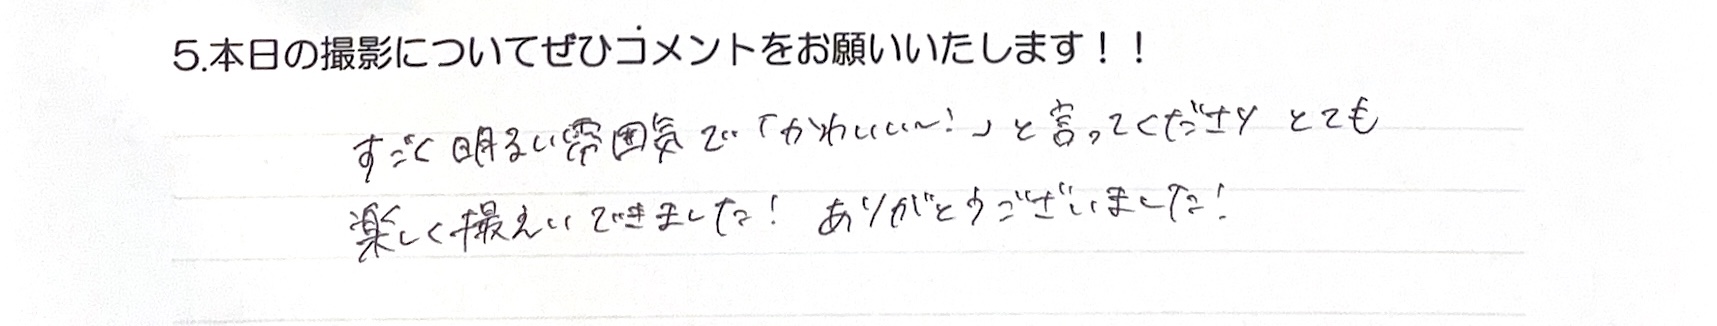 5.本日の撮影についてぜひコメントをお願いいたします！！
すごく明るい雰囲気で「かわいい〜！」と言ってくださり とても
楽しく撮えいできました！ ありがとうございました！